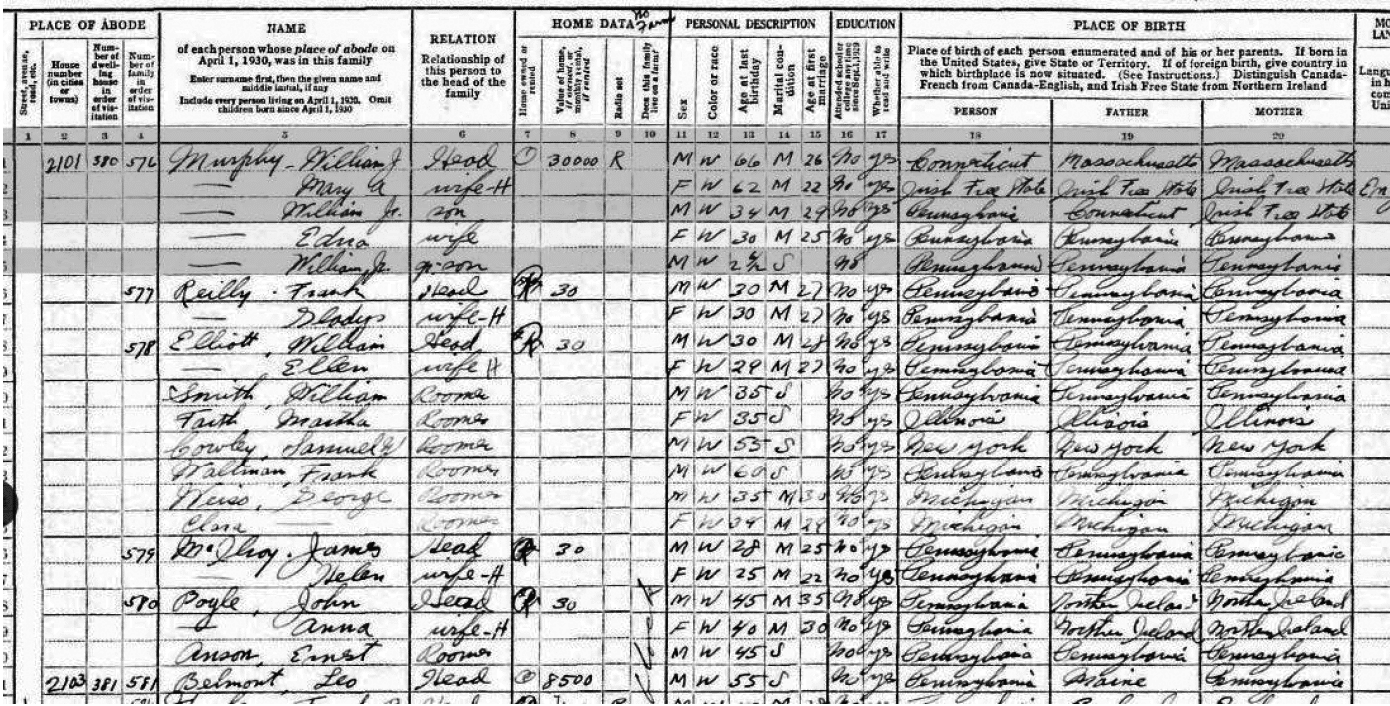 PLACE OF ABODE
NAME
RELATION
HOME DATA
no Farm
PERSONAL DESCRIPTION
EDUCATION
PLACE OF BIRTH
MO
LAN
Street, avenue, road, etc.
House number (in cities or towns)
Num- ber of dwell- ing house in order of vis- itation
Num- ber of family in order of vis- itation
of each person whose place of abode on
April 1, 1930, was in this family
Enter surname first, then the given name and
middle initial, if any
Include every person living on April 1, 1930. Omit
children born since April 1, 1930
Relationship of
this person to
the head of the
family
Home owned or rented
Value of home, if owned, or monthly rental, if rented
Radio set
Does this family live on a farm?
Sex
Color or race
Age at last birthday
Marital con- dition
Age at first marriage
Attended school or college any time since Sept. 1, 1929
Whether able to read and write
Place of birth of each person enumerated and of his or her parents. If born in
the United States, give State or Territory. If of foreign birth, give country in
which birthplace is now situated. (See Instructions.) Distinguish Canada-
French from Canada-English, and Irish Free State from Northern Ireland
PERSON FATHER MOTHER
Langu
in h
com
Uni
1 2 3 4 5 6 7 8 9 10 11 12 13 14 15 16 17 18 19 20
2101 380 576 Murphy - William J. Head O 30000 R M W 66 M 26 No yes Connecticut Massachusetts Massachusetts
— Mary A wife-H F W 62 M 22 No yes Irish Free State Irish Free State Irish Free State
— William Jr. son M W 34 M 29 No yes Pennsylvania Connecticut Irish Free State
— Edna wife F W 30 M 25 No yes Pennsylvania Pennsylvania Pennsylvania
— William, Jr. gr-son M W S no Pennsylvania Pennsylvania Pennsylvania
577 Reilly - Frank Head R 30 M W 30 M 27 No yes Pennsylvania Pennsylvania Pennsylvania
— Gladys wife-H F W 30 M 27 no yes Pennsylvania Pennsylvania Pennsylvania
578 Elliott, William Head R 30 M W 30 M 28 No yes Pennsylvania Pennsylvania Pennsylvania
— Ellen wife H F W 29 M 27 no yes Pennsylvania Pennsylvania Pennsylvania
Smith, William Roomer M W 35 S No yes Pennsylvania Pennsylvania Pennsylvania
Faith Martha Roomer F W 35 S No yes Illinois Illinois Illinois
Cowley, Samuel Roomer M W 55 S No yes New York New York New York
Waltman, Frank Roomer M W 60 S No yes Pennsylvania Pennsylvania Pennsylvania
Weiss, George Roomer M W 35 M 30 No yes Michigan Michigan Michigan
Clara — Roomer F W 34 M 29 No yes Michigan Michigan Michigan
579 McIlroy - James Head R 30 M W 28 M 25 No yes Pennsylvania Pennsylvania Pennsylvania
— Helen wife-H F W 25 M 22 no yes Pennsylvania Pennsylvania Pennsylvania
580 Poyle, John Head R 30 M W 45 M 35 No yes Pennsylvania Northern Ireland Northern Ireland
— Anna wife-H F W 40 M 30 No yes Pennsylvania Northern Ireland Northern Ireland
Anson, Ernest Roomer M W 45 S No yes Pennsylvania Pennsylvania Pennsylvania
2103 381 581 Belmont, Leo Head O 8500 M W 55 S No yes Pennsylvania Maine Pennsylvania